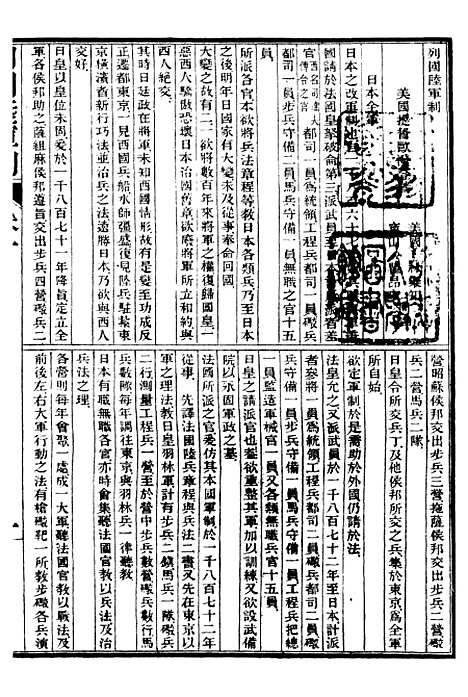 列國陸軍制
美國提督歐潑登
美國林樂知
日本全軍
日本之改軍制也一千八百六十七年日本
國請於法國皇拏破崙第三派武員至日本者差
官西名副使即傳令之官
都司一員爲統領工程兵都司一員礮兵
都司一員步兵守備二員馬兵守備一員無職之官十五
員
所派各官本欲將兵法章程等教日本各類兵乃至日本
之後明年日國家有大變未及從事奉命回國
大變之故有二一欲將數百年來將軍之權復歸國皇一
惡西人驕傲恐日本治國舊章欲廢將軍所立和約與
西人絕交
其時日廷政在將軍未知西國情形故有是變至功成反
正遷都東京一見西國兵船水師強盛復見陸兵駐紮東
京橫濱省新行巧法並治兵之法遠勝日本乃欲與西人
交好
日皇以皇位未固爰於一千八百七十一年降旨定立全
軍各侯邦助之薩組麻侯邦遵旨交出步兵四營礮兵二
營昭蘇侯邦交出步兵三營拖薩侯邦交出步兵二營礮
兵二營馬兵二隊
日皇令所交兵丁及他侯邦所交之兵集於東京爲全軍
所自始
欲定軍制於是喬助於外國仍請於法
法皇允之又派武員於一千八百七十二年至日本計派
者叅將一員爲統領工程兵都司一員礮
兵守備一員步兵守備一員馬兵守備一員工程兵把總
一員監造軍械官一員又各類無職兵官十五員
日皇之請派官也蓋欲重整其軍加以訓練又欲設武備
院以永固軍政之基
法國所派之官爰仿其本國軍制於一千八百七十二年
從事譯出法國陸兵章程與兵法二書又先在東京以
軍之理法教日皇羽林軍計有步兵二鎮馬兵一隊礮兵
二行測量工程兵一營至於營中步兵數營礮兵數行馬
兵數隊每年調往東京與羽林兵一律聽教
日本有職無職各官亦時會集聽法國官教以兵法及治
兵法之理
各營明每年會聚一處成一大軍聽法國官教以戰法及
前後左右大軍行動之法有槍礮靶一所教步礮各兵演